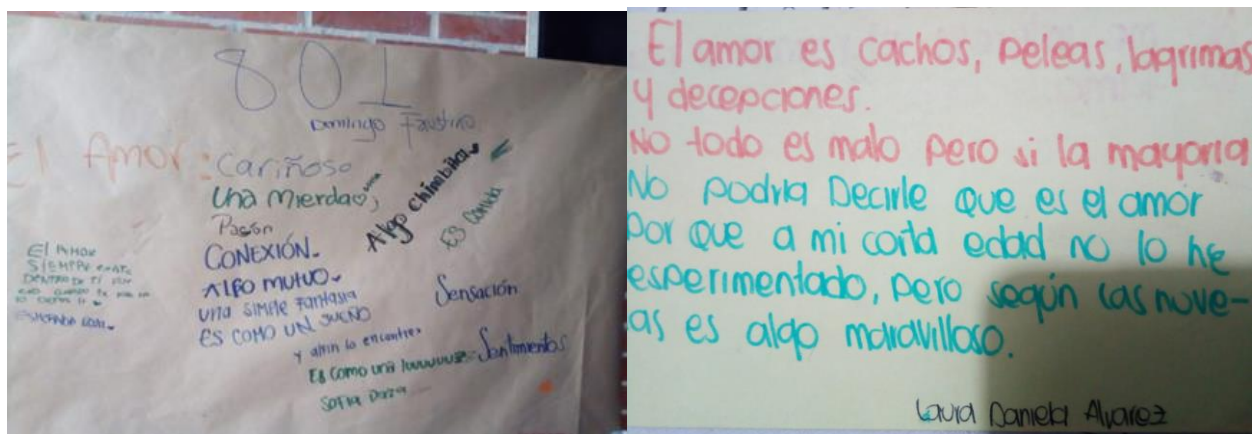 801
Domingo Faustino
El Amor: cariñoso
Una mierda
Pasón
CONEXIÓN.
ALGO MUTUO.
una simple Fantasia
ES COMO UN SUEÑO
y almin lo encontre
Es como una luuuuuz
Sofia
Algo chimbita
Es Comida
Sensación
Sentimientos
El AMOR
SIEMPRE
DENTRO DE TÍ
El amor es cachos, peleas, lagrimas
y decepciones.
No todo es malo pero si la mayoria
No podria Decirle que es el amor
por que a mi corta edad no lo he
esperimentado, pero según las nuve-
as es algo maravilloso.
Laura Daniela Alvarez